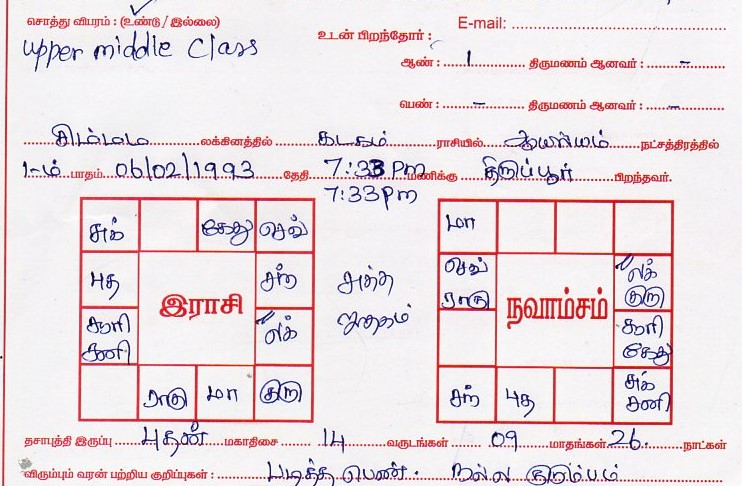 சொத்து விபரம் : (உண்டு / இல்லை)
upper middle Class
E-mail:
உடன் பிறந்தோர் :
ஆண் : 1 திருமணம் ஆனவர் : -
பெண் : - திருமணம் ஆனவர் : -
சிம்மம் லக்கினத்தில் கடகம் ராசியில் ஆயில்யம் நட்சத்திரத்தில்
1-ம் பாதம் 06/02/1993 தேதி 7:33 Pm மணிக்கு திருப்பூர் பிறந்தவர்.
7:33pm
சுக் கேது செவ்
புத சந்
சூரி சனி லக்
ராகு மா குரு
இராசி
சுத்த ஜாதகம்
மா
செவ் ராகு லக் குரு
சூரி கேது
சந் புத சுக் சனி
நவாம்சம்
தசாபுத்தி இருப்பு புதன் மகாதிசை 14 வருடங்கள் 09 மாதங்கள் 26 நாட்கள்
விரும்பும் வரன் பற்றிய குறிப்புகள் : படித்த பெண். நல்ல குடும்பம்